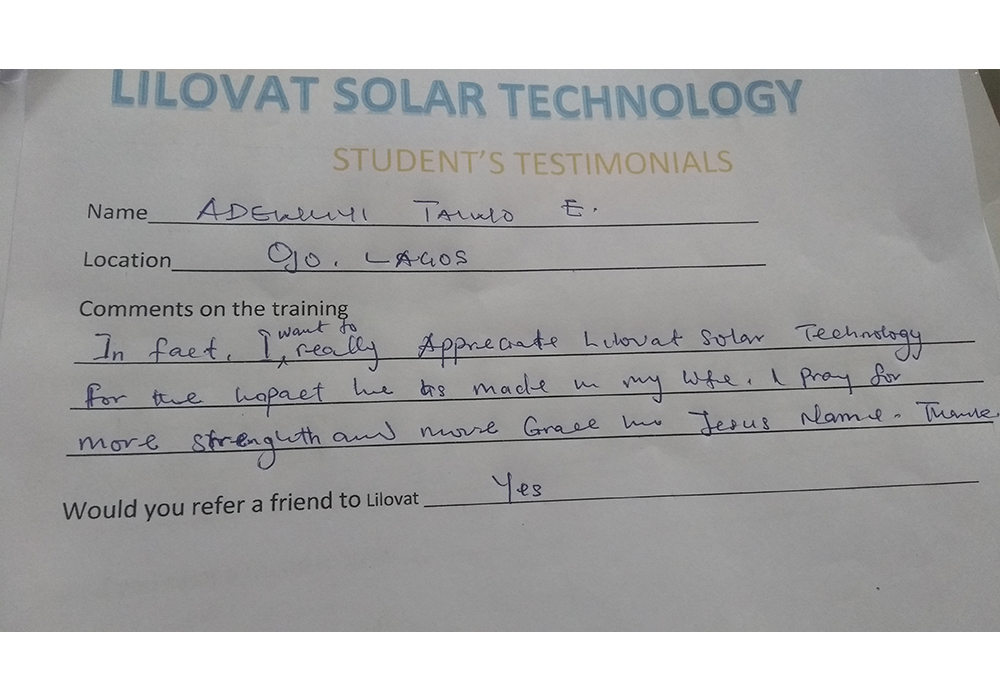 LILOVAT SOLAR TECHNOLOGY
STUDENT'S TESTIMONIALS
Name ADEKUNYI TAIWO E.
Location OJO. LAGOS
Comments on the training
In fact, I want to really Appreciate Lilovat Solar Technology
for the impact he has made in my life. I pray for
more strenghth and more Grace in Jesus Name. Thank
Would you refer a friend to Lilovat Yes